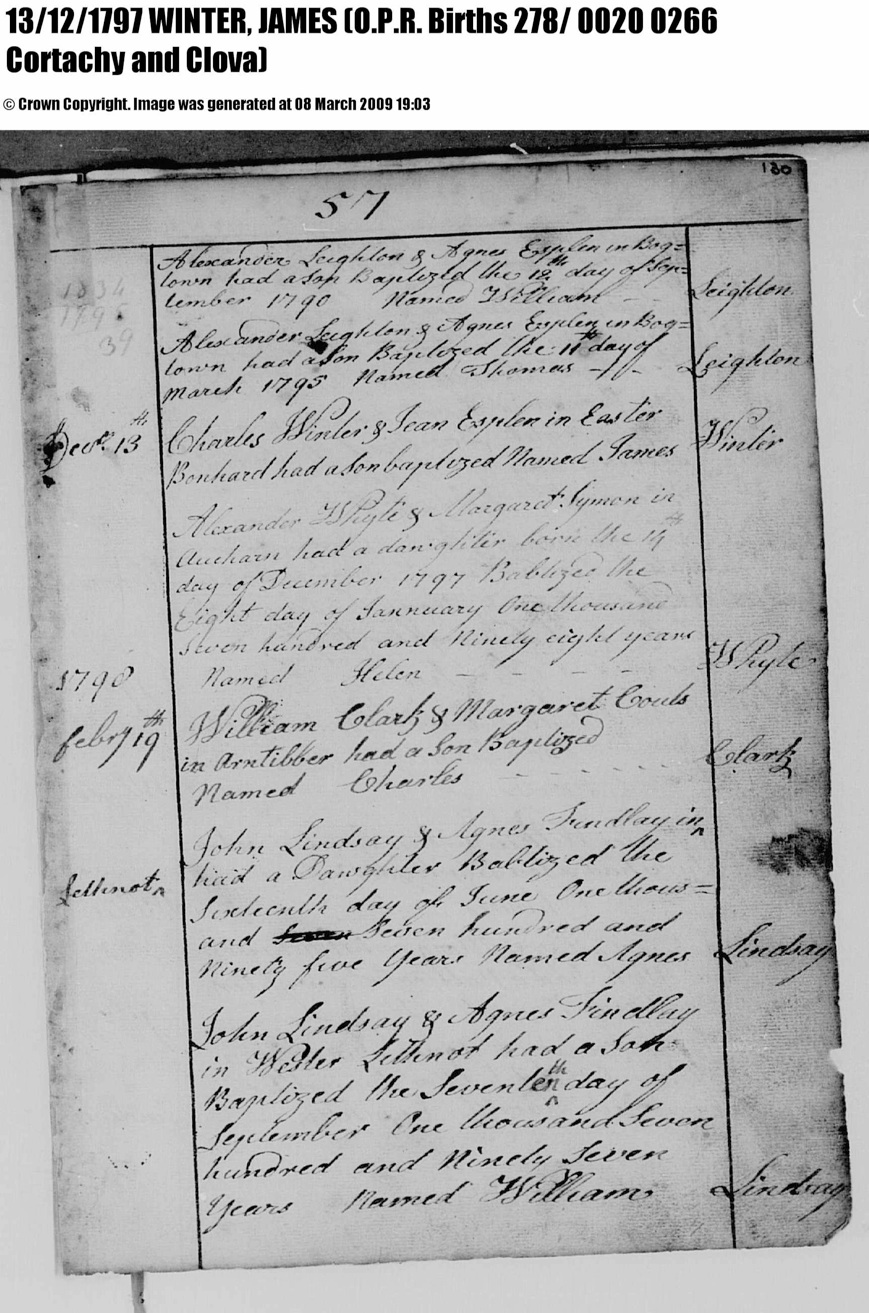 13/12/1797 WINTER, JAMES (O.P.R. Births 278/ 0020 0266
Cortachy and Clova)
© Crown Copyright. Image was generated at 08 March 2009 19:03
130
57
Alexander Leighton & Agnes Esplen in Bog=
town had a Son Baptized the 12th day of Sep=
tember 1790 Named William
Leighton
Alexander Leighton & Agnes Esplen in Bog=
town had a Son Baptized the 11th day of
March 1795 Named Thomas
Leighton
Decr. 13th
Charles Winter & Jean Esplen in Easter
Bonhard had a Son baptized Named James
Winter
Alexander Whyte & Margaret Symon in
Aucharn had a dawghter born the 14th
day of December 1797 Babtized the
Eight day of Jannuary One thousand
Seven hundred and Ninety eight years
Named Helen
Whyte
1798
febry 19th
William Clark & Margaret Couts
in Arntibber had a Son Baptized
Named Charles
Clark
John Lindsay & Agnes Findlay in ^
Lethnot ^
had a Dawghter Babtized the
Sixteenth day of June One thous=
and Seven hundred and
Ninety five Years Named Agnes
Lindsay
John Lindsay & Agnes Findlay
in Wester Lethnot had a Son
Baptized the Sevententh day of
September One thousand Seven
hundred and Ninety Seven
Years Named William
Lindsay